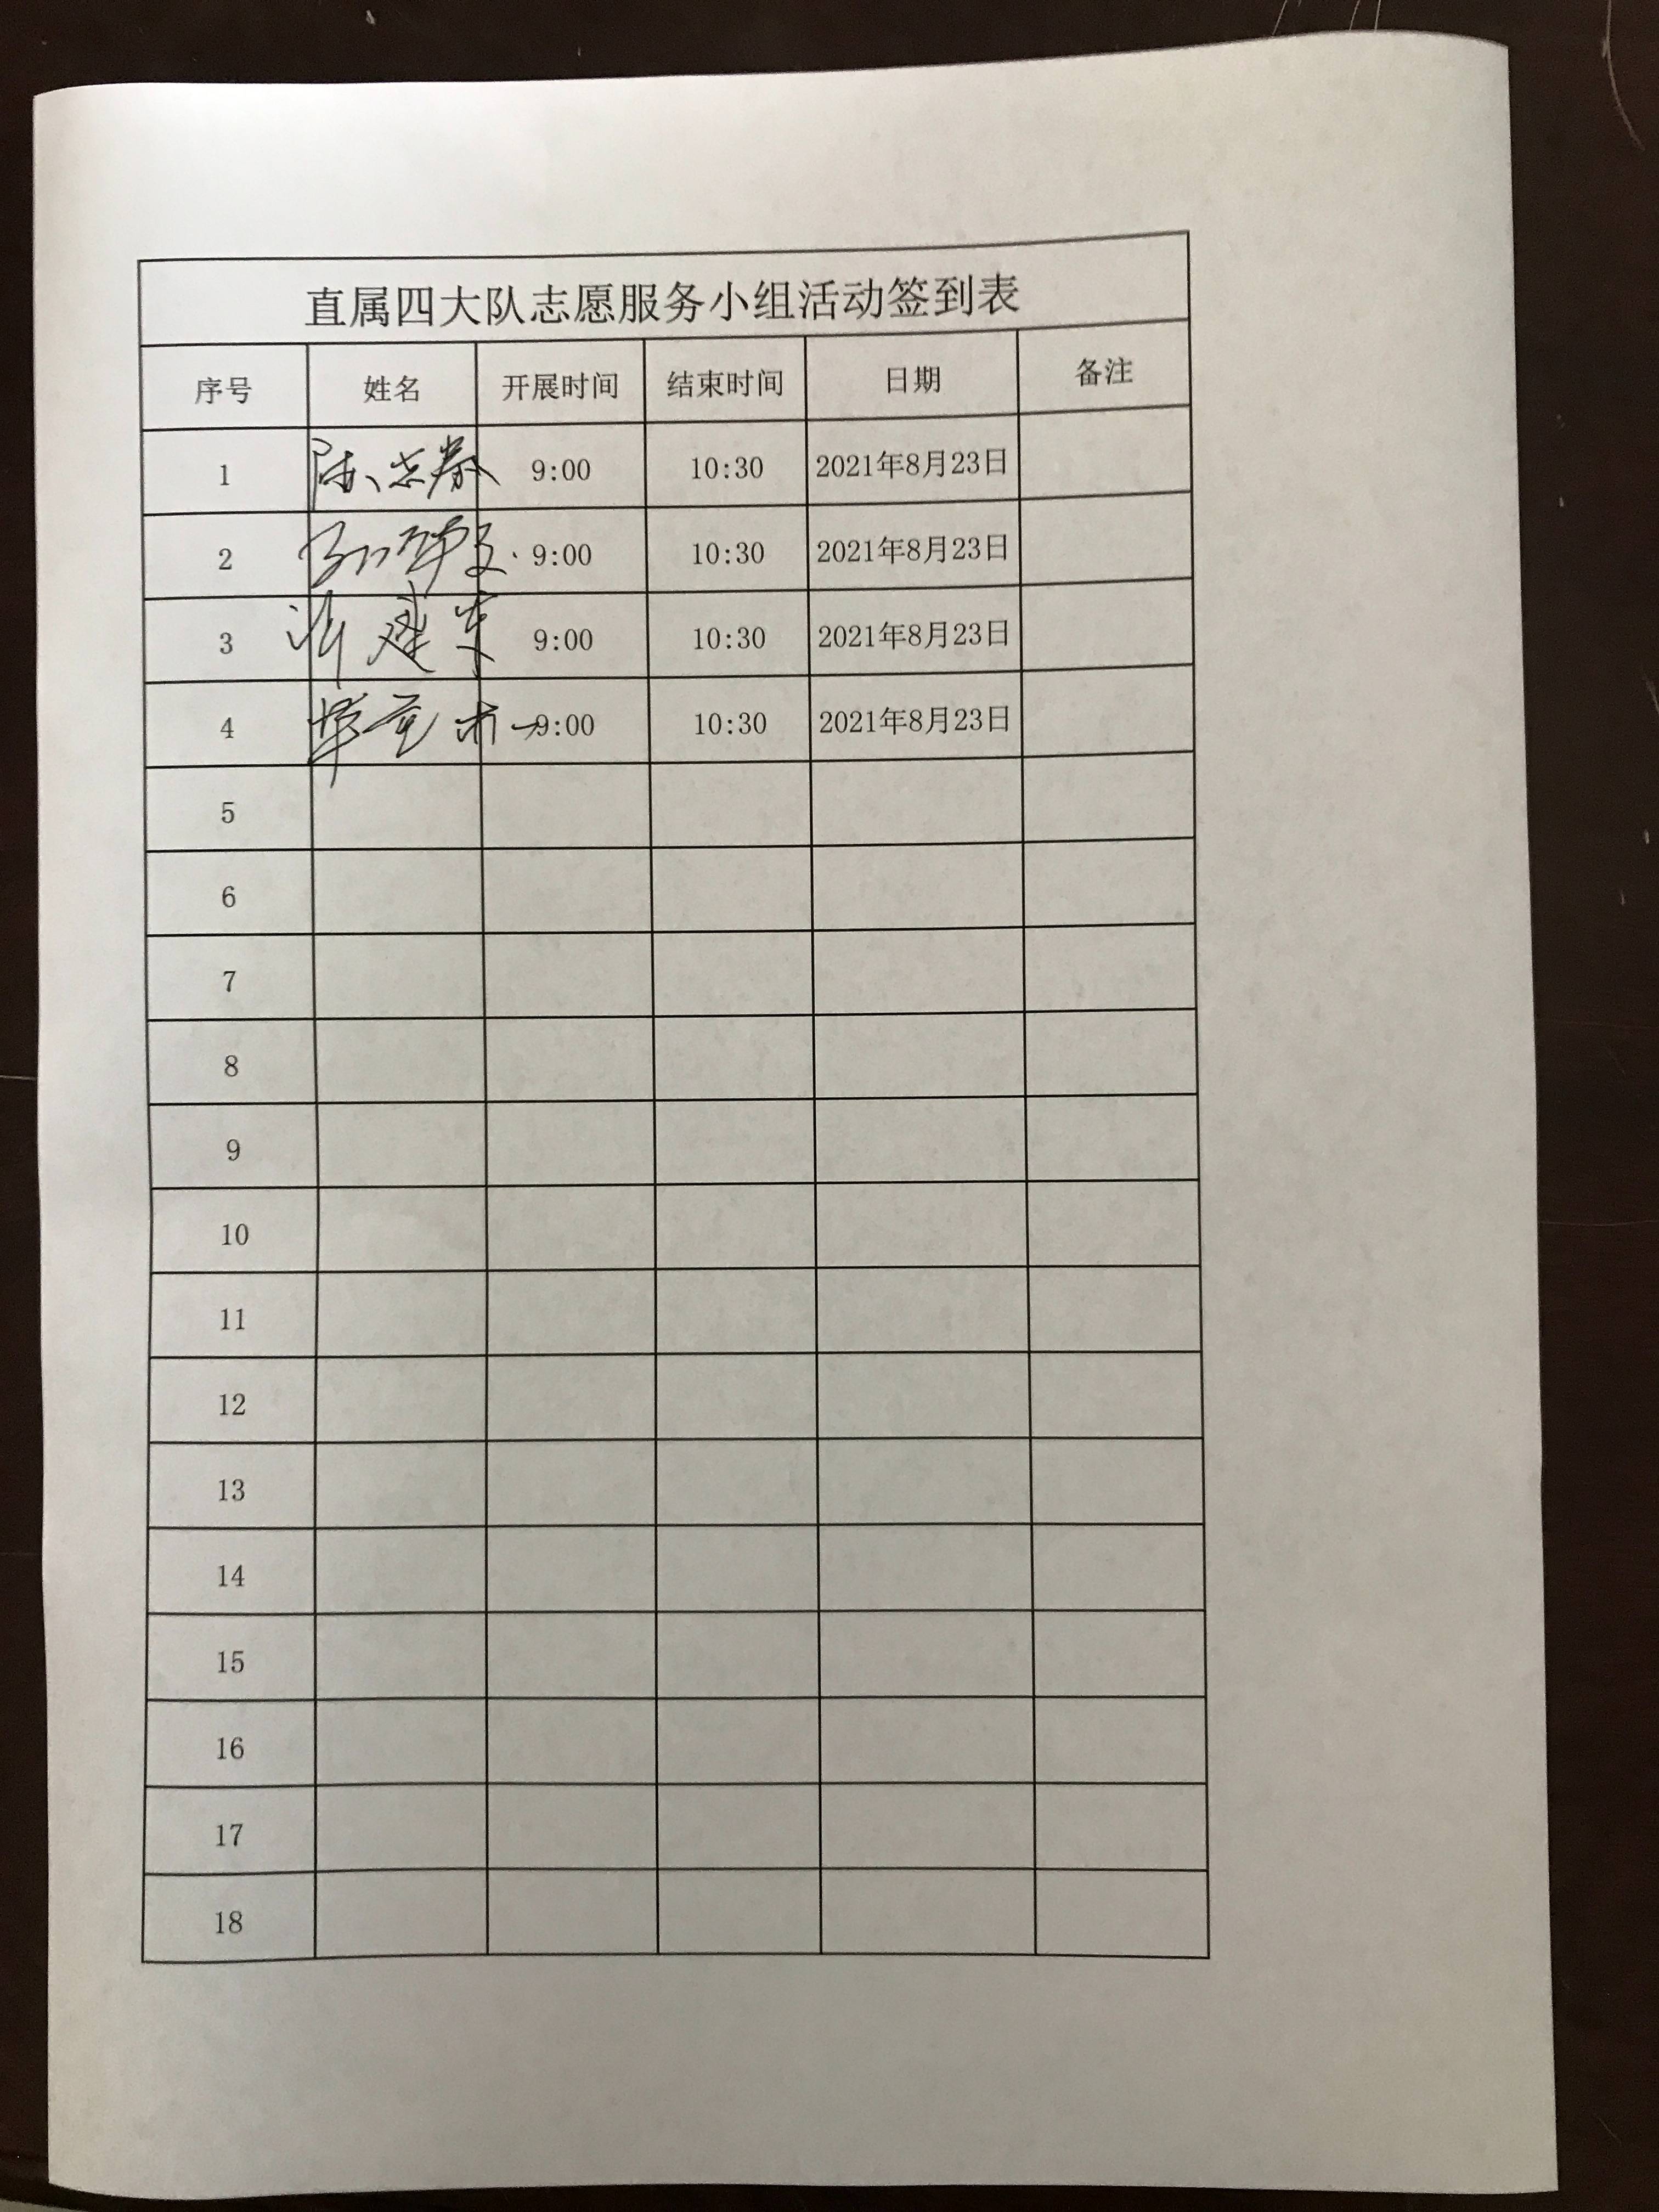 直属四大队志愿服务小组活动签到表
序号 姓名 开展时间 结束时间 日期 备注
1 陈志春 9:00 10:30 2021年8月23日
2 9:00 10:30 2021年8月23日
3 建东 9:00 10:30 2021年8月23日
4 9:00 10:30 2021年8月23日
5
6
7
8
9
10
11
12
13
14
15
16
17
18